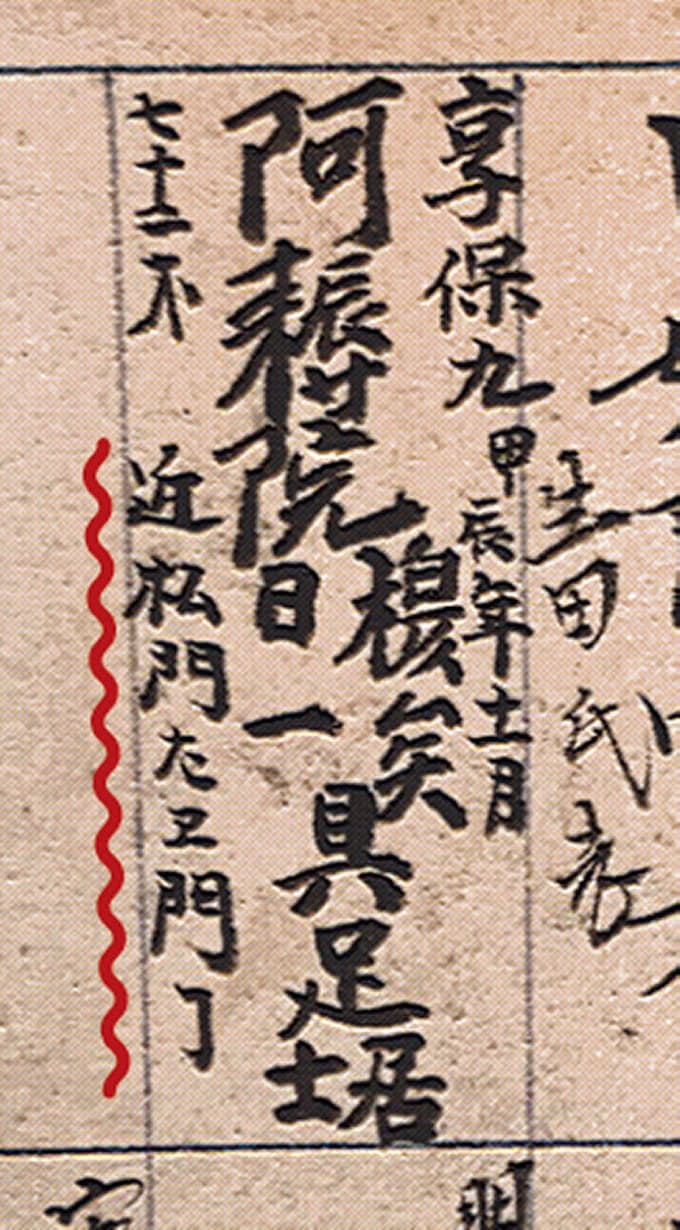 生田氏
享保九甲辰年十一月
阿耨院穆矣日一具足居士
七十二才 近松門左エ門ヿ